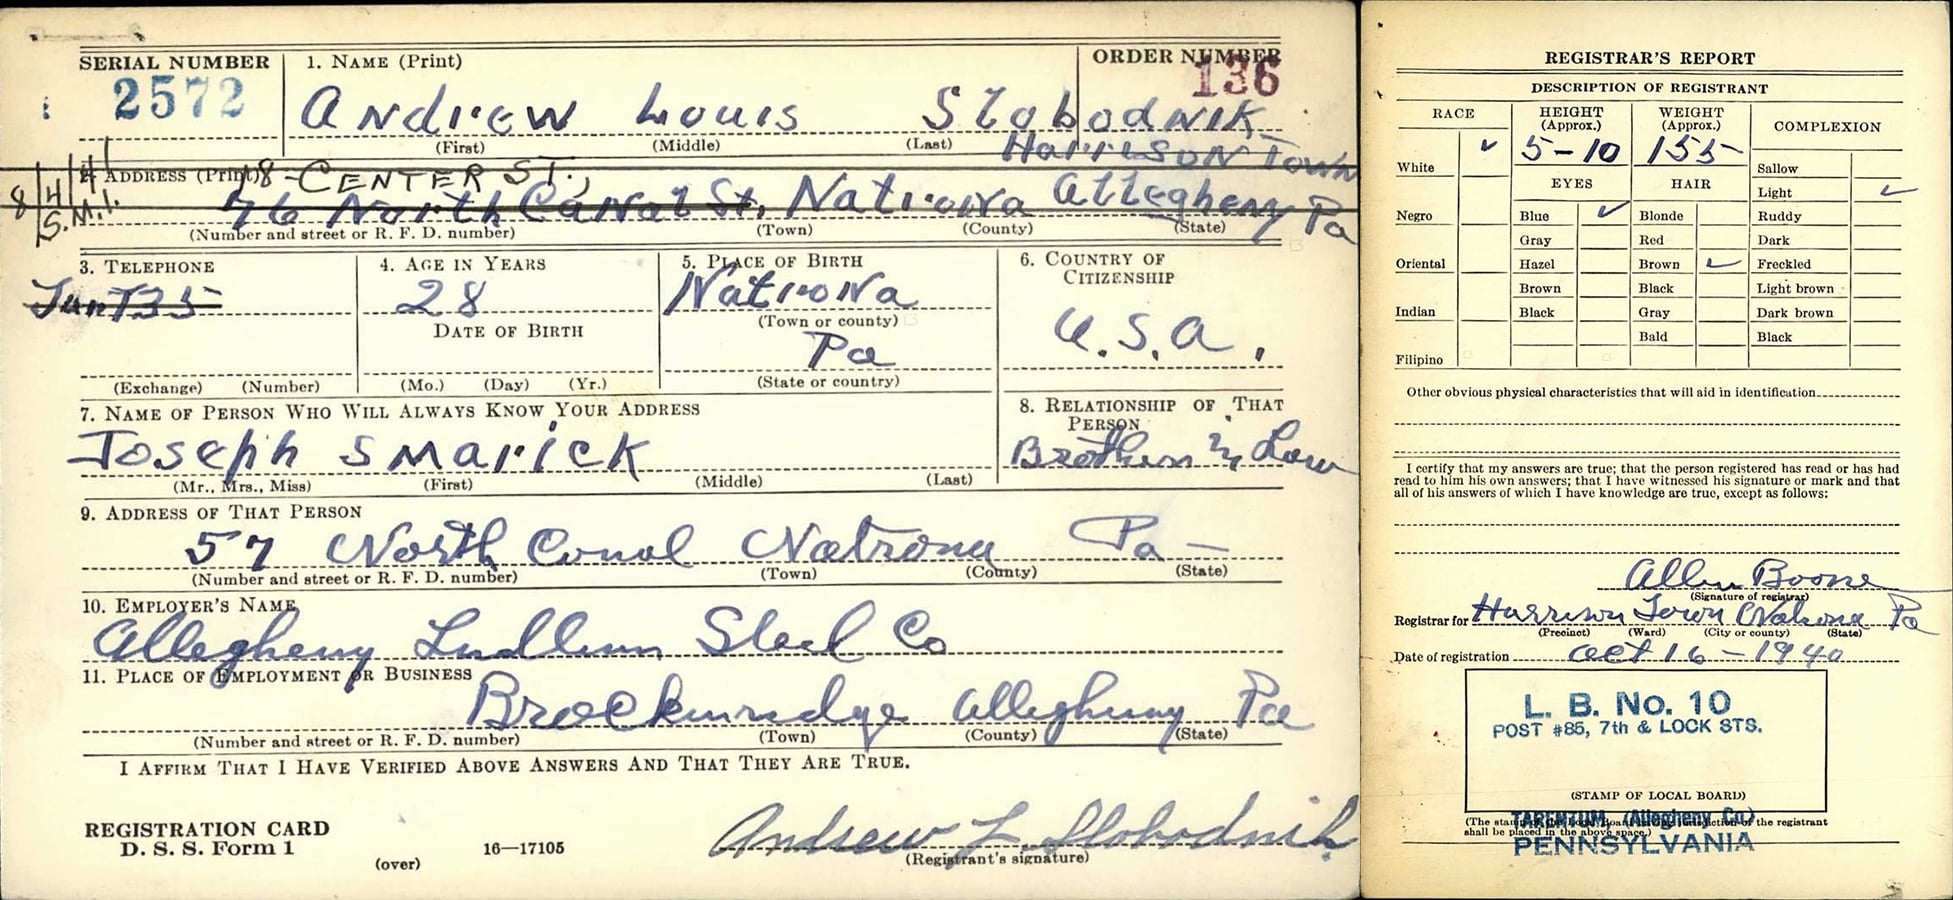 SERIAL NUMBER
2572
1. NAME (Print)
Andrew Louis Slobodnik
(First) (Middle) (Last)
ORDER NUMBER
136
Harrison Town
8/4/41
S.M.I.
2. ADDRESS (Print)
18 CENTER ST.,
76 North Canal St. Natrona Allegheny Pa
(Number and street or R. F. D. number) (Town) (County) (State)
3. TELEPHONE
735
(Exchange) (Number)
4. AGE IN YEARS
28
DATE OF BIRTH
(Mo.) (Day) (Yr.)
5. PLACE OF BIRTH
Natrona
(Town or county)
Pa
(State or country)
6. COUNTRY OF CITIZENSHIP
U.S.A.
7. NAME OF PERSON WHO WILL ALWAYS KNOW YOUR ADDRESS
Joseph Smarick
(Mr., Mrs., Miss) (First) (Middle) (Last)
8. RELATIONSHIP OF THAT PERSON
Brother in Law
9. ADDRESS OF THAT PERSON
57 North Canal Natrona Pa
(Number and street or R. F. D. number) (Town) (County) (State)
10. EMPLOYER'S NAME
Allegheny Ludlum Steel Co
11. PLACE OF EMPLOYMENT OR BUSINESS
Brackenridge Allegheny Pa
(Number and street or R. F. D. number) (Town) (County) (State)
I AFFIRM THAT I HAVE VERIFIED ABOVE ANSWERS AND THAT THEY ARE TRUE.
REGISTRATION CARD
D. S. S. Form 1
(over)
16—17105
Andrew L. Slobodnik
(Registrant's signature)
REGISTRAR'S REPORT
DESCRIPTION OF REGISTRANT
RACE
HEIGHT (Approx.)
WEIGHT (Approx.)
COMPLEXION
White ✓
5-10
155
Sallow
EYES
HAIR
Light ✓
Negro
Blue ✓
Blonde
Ruddy
Gray
Red
Dark
Oriental
Hazel
Brown ✓
Freckled
Brown
Black
Light brown
Indian
Black
Gray
Dark brown
Bald
Black
Filipino
Other obvious physical characteristics that will aid in identification
I certify that my answers are true; that the person registered has read or has had
read to him his own answers; that I have witnessed his signature or mark and that
all of his answers of which I have knowledge are true, except as follows:
Allen Boone
(Signature of registrar)
Registrar for Harrison Town Natrona Pa
(Precinct) (Ward) (City or county) (State)
Date of registration Oct 16 - 1940
L. B. No. 10
POST #85, 7th & LOCK STS.
(STAMP OF LOCAL BOARD)
TARENTUM, (Allegheny Co)
(The stamp of the Local Board having jurisdiction of the registrant
shall be placed in the above space.)
PENNSYLVANIA